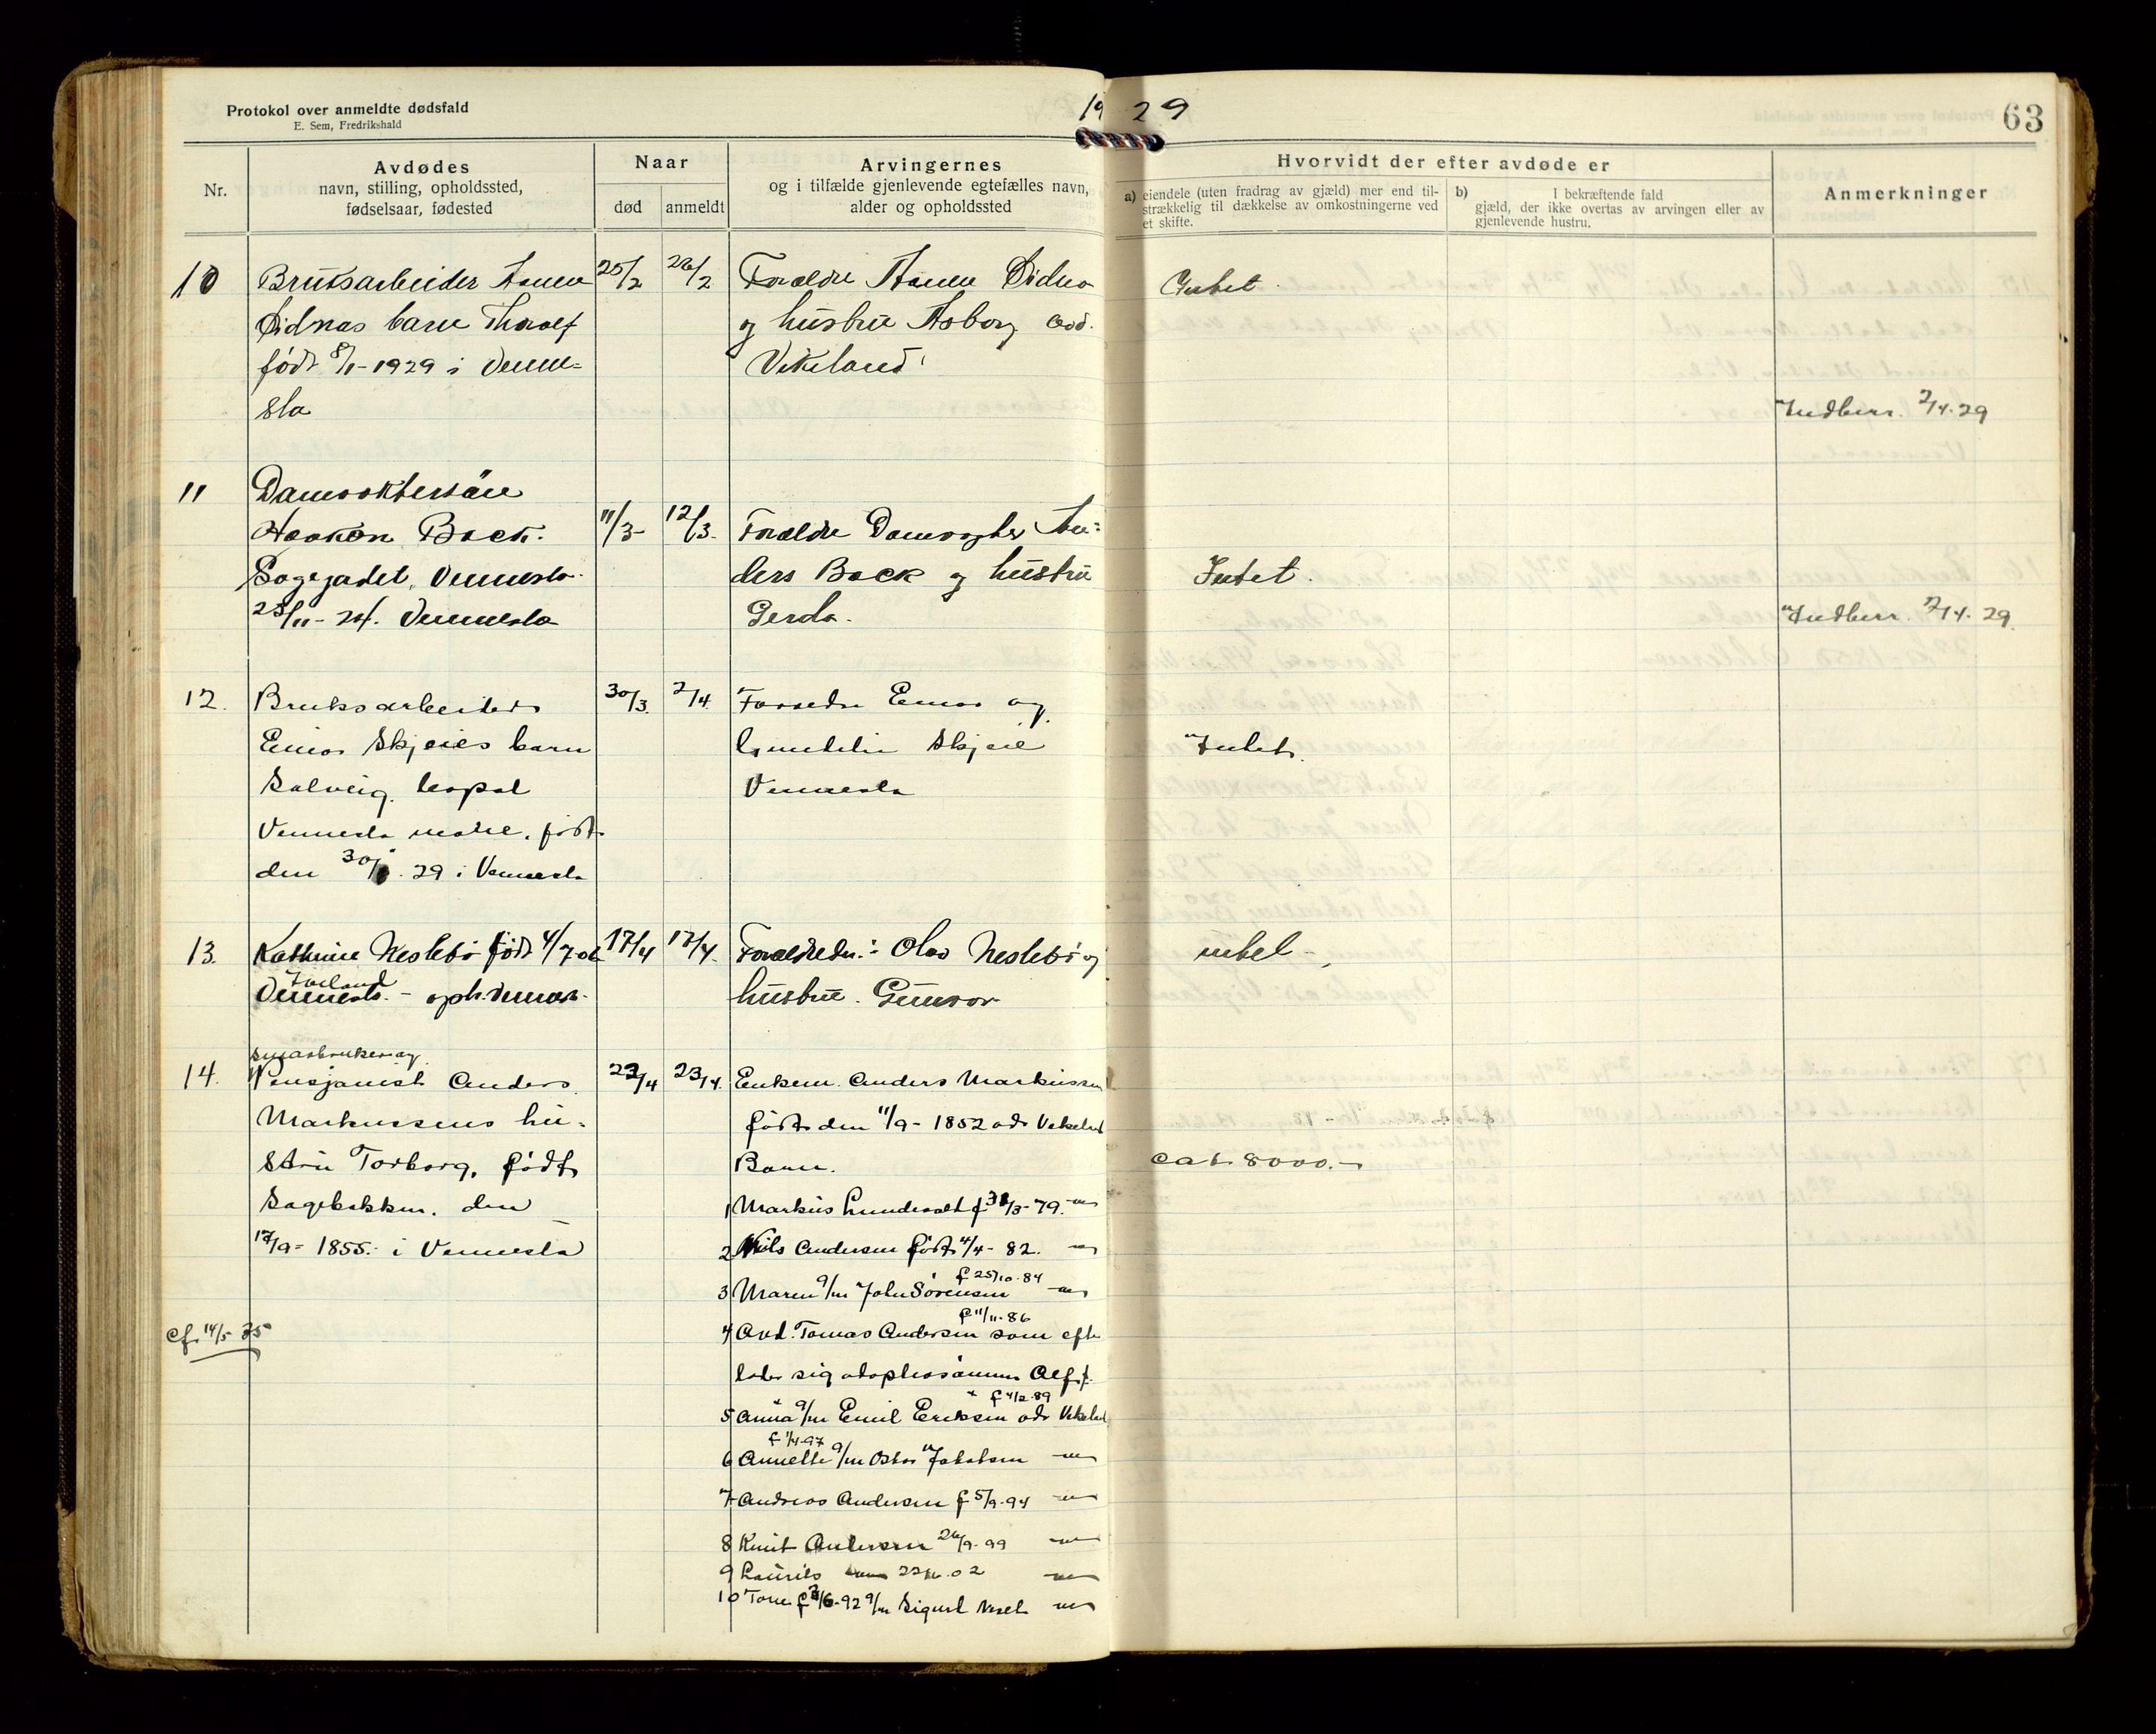 Protokol over anmeldte dødsfald
E. Sem, Fredrikshald
1929
63
Nr.
Avdødes
navn, stilling, opholdssted,
fødselsaar, fødested
Naar
død
anmeldt
Arvingernes
og i tilfælde gjenlevende egtefælles navn,
alder og opholdssted
Hvorvidt der efter avdøde er
a) eiendele (uten fradrag av gjæld) mer end til-
strækkelig til dækkelse av omkostningerne ved
et skifte.
b) I bekræftende fald
gjæld, der ikke overtas av arvingen eller av
gjenlevende hustru.
Anmerkninger
10
Bruksarbeider
barn Thoralf
født 8/1-1929 i Venne-
sla
25/2
26/2
Forældre
og hustru Asborg
Vikeland
Intet
Indberr. 2/4.29
11
Damvoktersøn
Haakon Back.
Vennesla
23/11-24. Vennesla
11/3-
12/3.
Forældre Damvogter An-
ders Back og hustru
Gerda.
Intet.
Indberr. 2/4.29.
12.
Bruksarbeider
Einar Skjeies barn
Solveig. bopæl
Vennesla født
den 29 i Vennesla
30/3.
2/4.
Einar og
Skjeie
Vennesla
Intet.
13.
Kathrine Neslebø født 4/7
Iveland
Vennesla. - oph. Vennesla.
17/4
17/4.
Olav Neslebø og
hustru. Gunvor
intet -
14.
smaabruker og
Pensjonist Anders
Markussens hu-
stru Torborg, født
Sagebakken. den
17/9-1855. i Vennesla
cf. 14/5-35
22/4
23/4.
Enkem. Anders Markussen
født den 11/9-1852 ads Vikeland
Barn.
1 Markus f -79. -"-
2 Nils Andersen født 11/4-82. -"-
f 25/10-84
3 Maren g/m John Sørensen -"-
f 11/11-86
4 Avd. Tomas Andersen som efter
later sig adoptivsønnen Alf
f 4/2-89
5 Anna g/m Emil Eriksen ads Vikeland
f 1/4-97
6 Annette g/m Oskar Jakobsen -"-
7 Andreas Andersen f 5/9-94 -"-
8 Knut Andersen 26/9-99 -"-
9 Laurits -"- 02 -"-
10 Tone f /6-92 g/m Sigurd -"-
cat. 8000.-